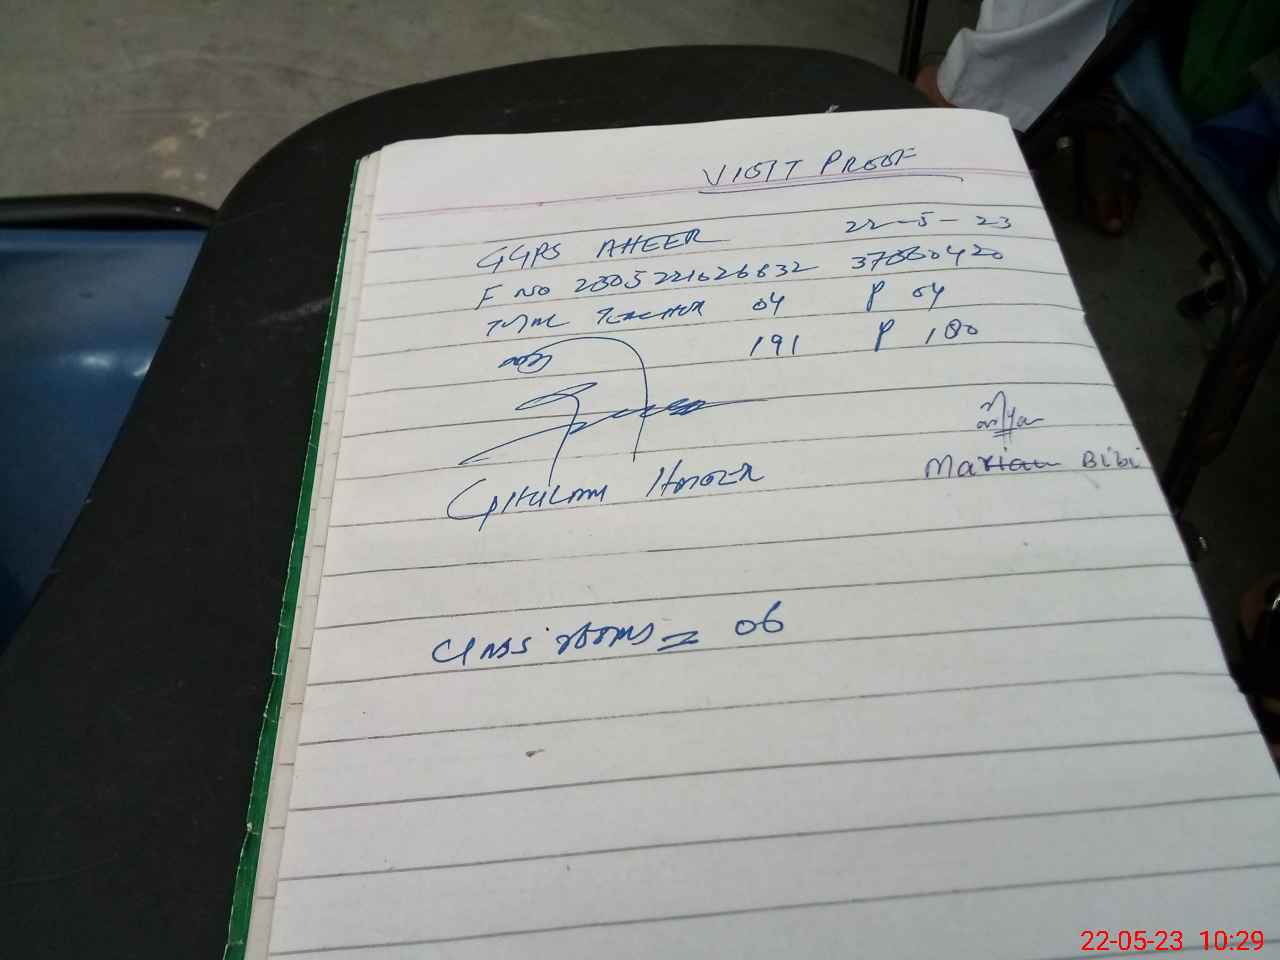 VISIT PROOF
GGPS AHEER 22-5-23
F NO 2305221626832
Total Teacher 04 P 04
191 P 180
Ghulam Haider
Mariam Bibi
Class rooms = 06
22-05-23 10:29